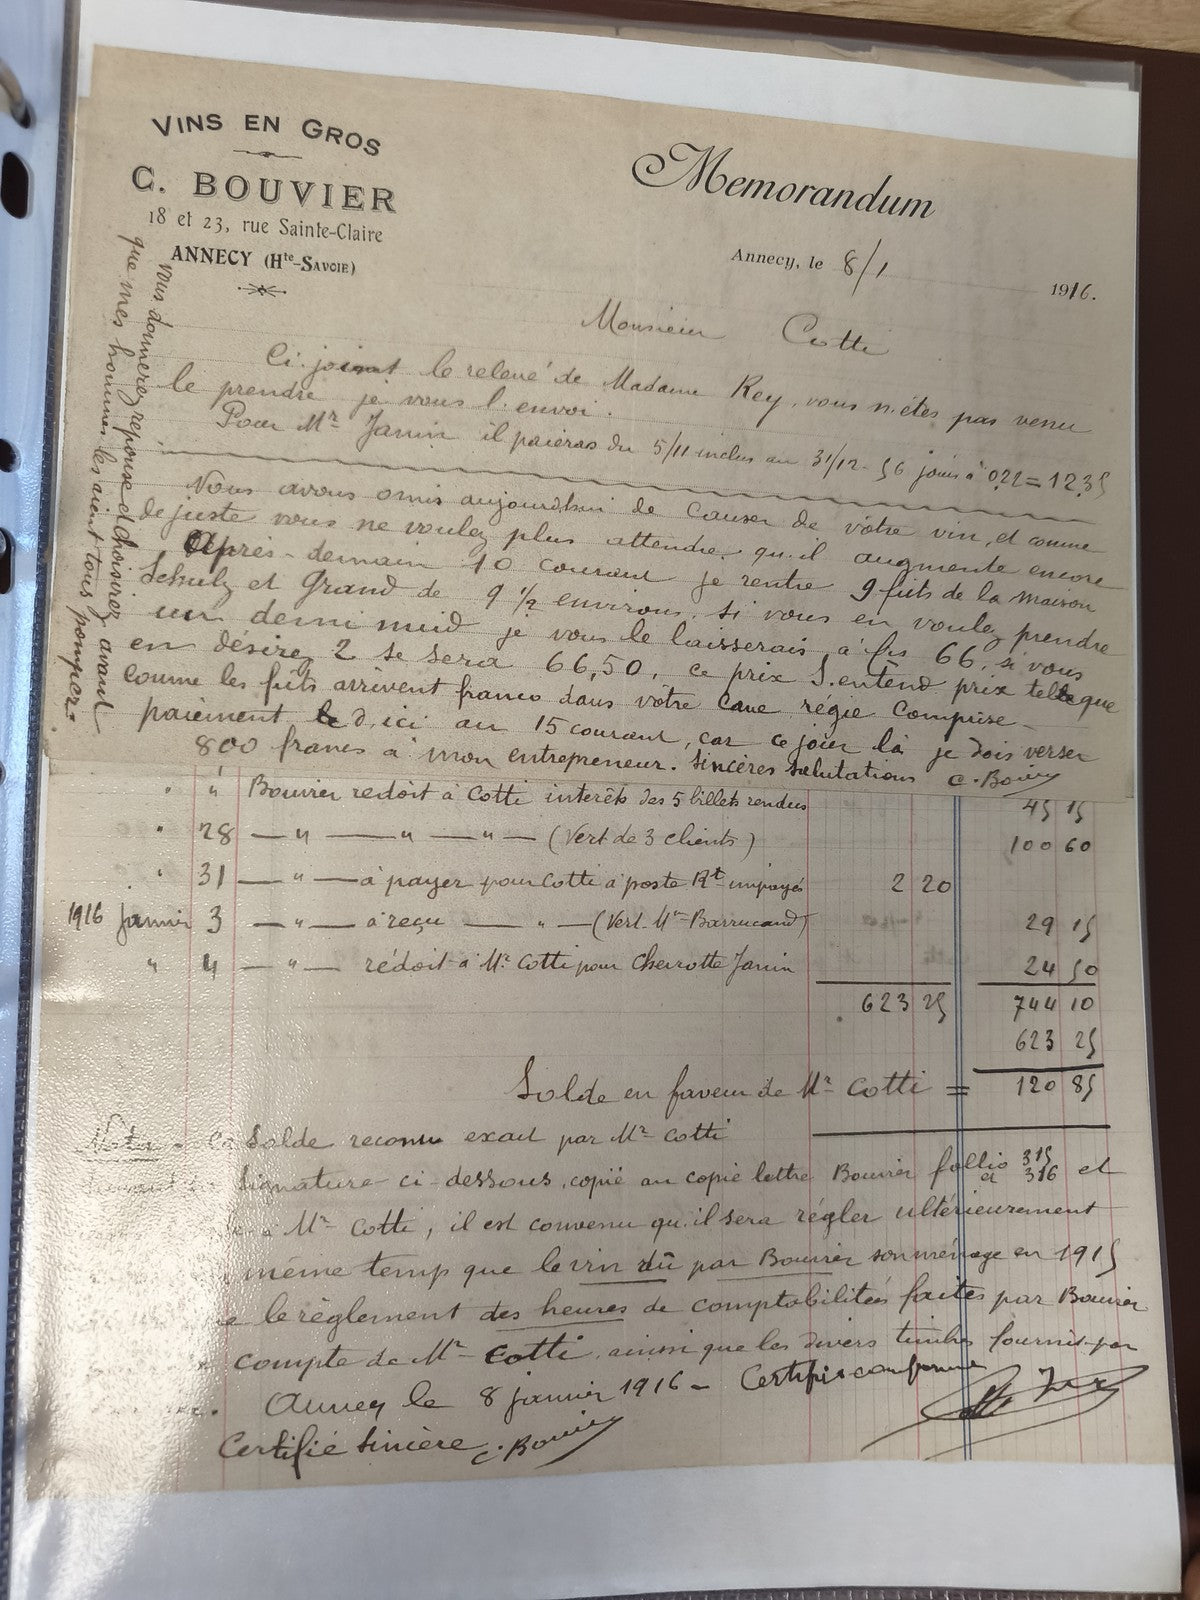 VINS EN GROS
C. BOUVIER
18 et 23, rue Sainte-Claire
ANNECY (Hte-SAVOIE)
Memorandum
Annecy, le 8/1 1916.
Monsieur Cotti
Ci-joint le relevé de Madame Rey, vous n'êtes pas venu
le prendre je vous l'envoi.
Pour Mr Janin il paieras du 5/11 inclus au 31/12 - 56 jours à 0.22 = 12.35
Nous avons omis aujourd'hui de causer de votre vin, et comme
de juste vous ne voulez plus attendre qu'il augmente encore
Après-demain 10 courant je rentre 9 futs de la maison
Schulz et Grand de 9 1/2 environs, si vous en voulez prendre
un demi muid je vous le laisserais à frs 66, si vous
en désirez 2 se sera 66,50, ce prix s'entend prix telle que
comme les futs arrivent franco dans votre cave régie comprise -
paiement le d'ici au 15 courant, car ce jour là je dois verser
800 francs à mon entrepreneur. Sincères salutations C. Bouvier
vous donnerez reponse et choisirez avant
que mes hommes les aient tous pomper.
" " Bouvier redoit à Cotti interêts des 5 billets rendus 45 15
" 28 — " — " — " — (Vert de 3 clients) 100 60
" 31 — " — à payer pour Cotti à poste Rt impayés 2 20
1916 Janvier 3 — " — à reçu — " — (Vert. Mr Barrucand) 29 15
" 4 — " — rédoit à Mr Cotti pour Charrotte Janin 24 50
623 25 744 10
623 25
Solde en faveur de Mr Cotti = 120 85
Nota - Ce Solde reconnu exact par Mr Cotti
signature ci-dessous, copié au copie lettre Bouvier follio 315 et 316 et
à Mr Cotti, il est convenu qu'il sera régler ultérieurement
même temp que le vin dû par Bouvier son ménage en 1915
le règlement des heures de comptabilités faites par Bouvier
compte de Mr Cotti, ainsi que les divers timbres fournis par
Annecy le 8 janvier 1916 - Certifié conforme
Certifié sincère C. Bouvier